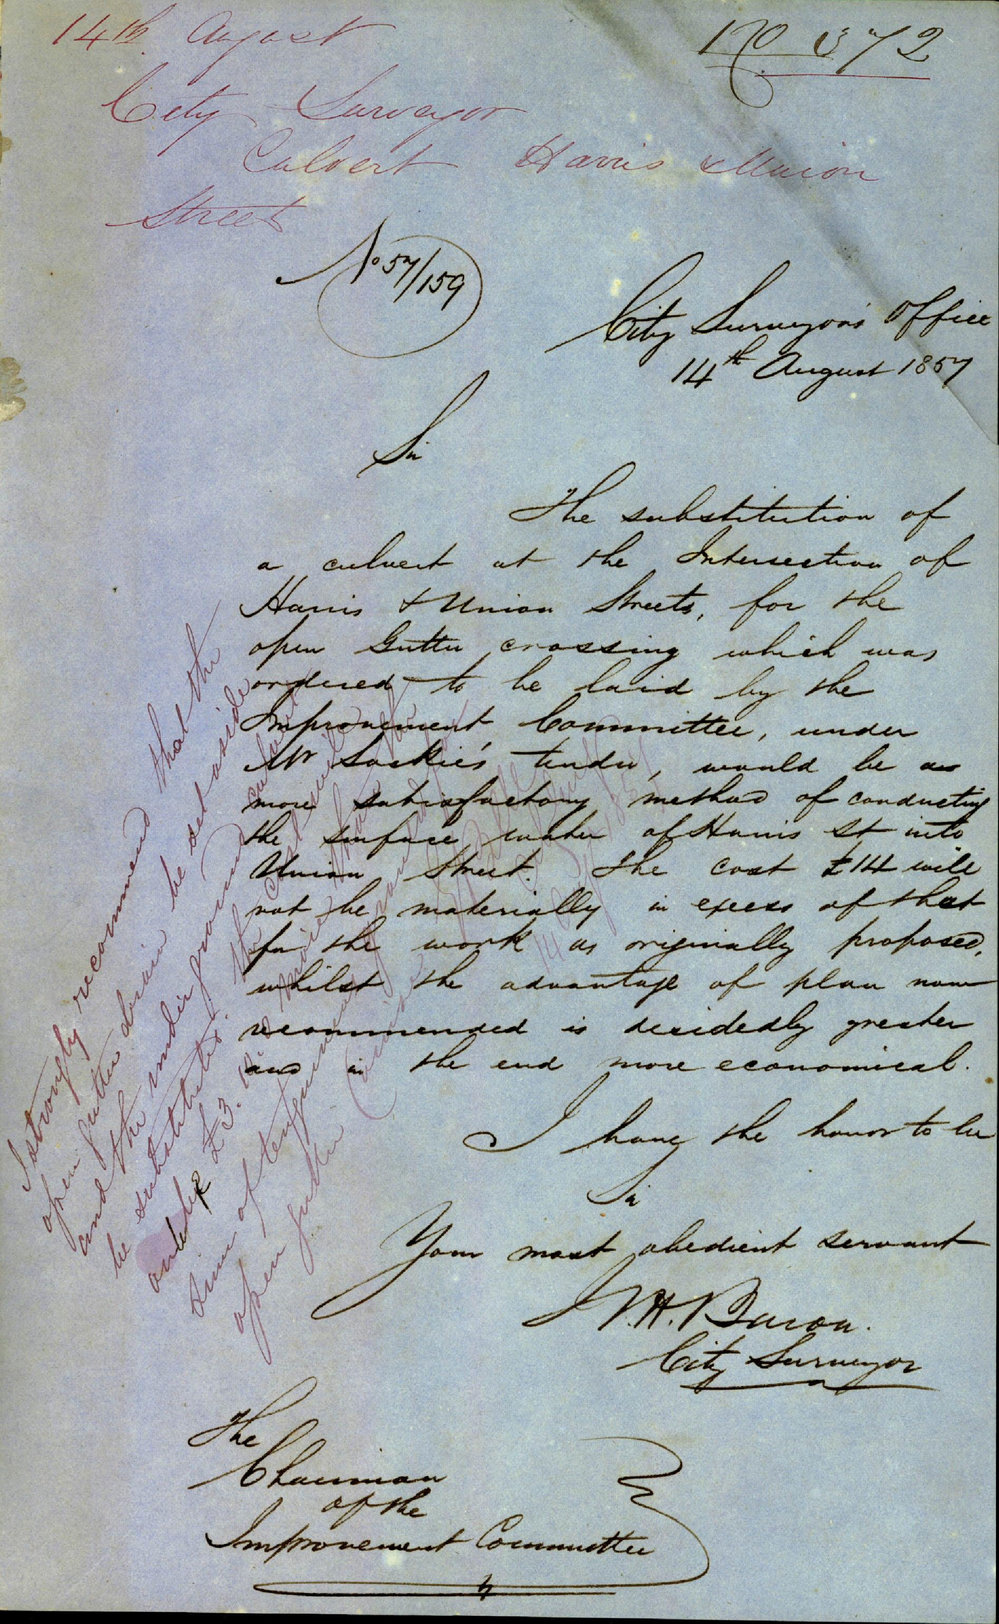 14th August
No 872
City Surveyor
Culvert Harris & Union
Street
No 57/159
City Surveyor's Office
14th August 1857
Sir
The substitution of
a culvert at the Intersection of
Harris & Union Streets, for the
open Gutter crossing which was
ordered to be laid by the
Improvement Committee, under
Mr tender, would be a
more satisfactory method of conducting
the surface water of Harris St into
Union Street. The cost £14 will
not be materially in excess of that
for the work as originally proposed,
whilst the advantage of plan now
recommended is decidedly greater
and in the end more economical.
I have the honor to be
Sir
Your most obedient servant
City Surveyor
The
Chairman
of the
Improvement Committee
I strongly recommend that the
open gutter drain be set aside
and the underground culvert
be substituted. the cost
only £3. more than
sum of
open gutter